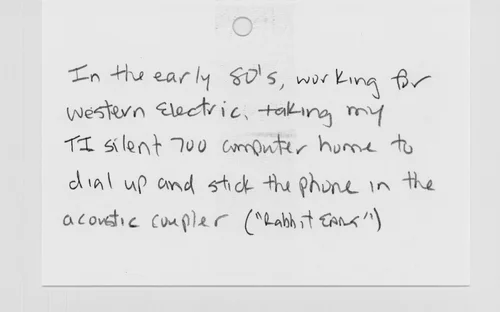 In the early 80's, working for
Western Electric, taking my
TI silent 700 computer home to
dial up and stick the phone in the
acoustic coupler ("Rabbit EARS")